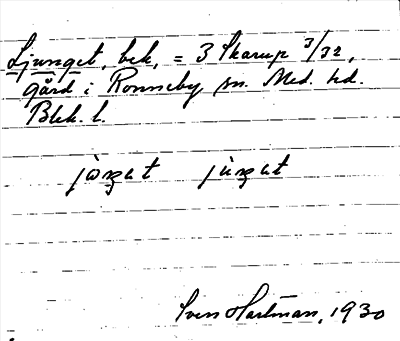 Ljunget, bek. = 3 Skarup 3/32,
gård i Ronneby sn. Med. hd.
Blek. l.
jòŋat jùŋat
Sven Hartman, 1930